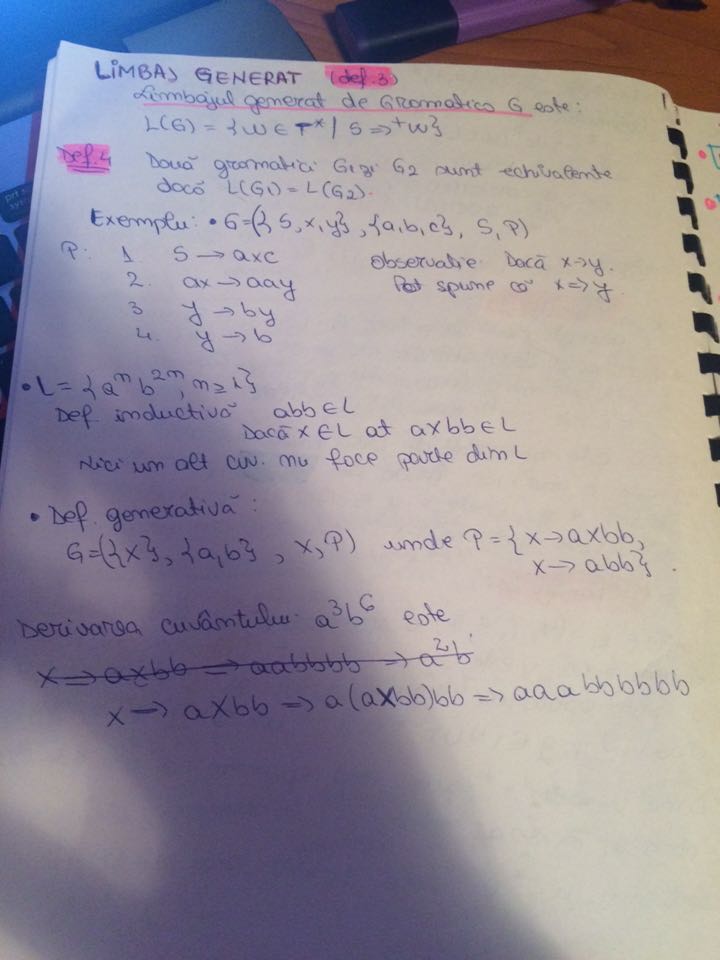 LIMBAJ GENERAT (def.3)
Limbajul generat de Gramatica G este:
L(G) = {w ∈ T* / S =>⁺ w}
Def.4 Două gramatici G1 și G2 sunt echivalente
dacă L(G1) = L(G2).
Exemplu: • G=({S,x,y}, {a,b,c}, S, P)
P: 1. S → axc Observatie Dacă x→y.
2. ax → aay Pot spune că x=>y.
3 y → by
4. y → b
• L = {aⁿ b²ⁿ, n≥1}
Def inductivă abb ∈ L
Dacă x ∈ L at axbb ∈ L
Nici un alt cuv. nu face parte din L
• Def. generativă:
G=({x}, {a,b}, x, P) unde P={x→axbb,
x→abb}.
Derivarea cuvântului a³b⁶ este
x => axbb => aabbbb => a²b
x => axbb => a(axbb)bb => aaabbbbbb